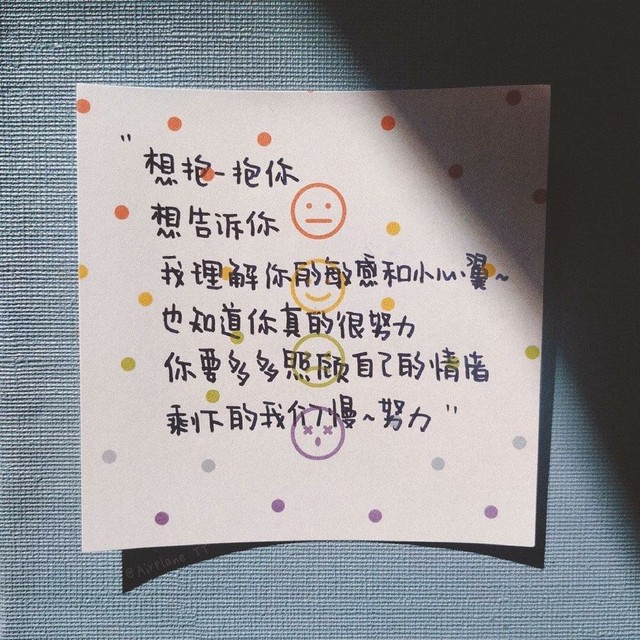 "想抱一抱你
想告诉你
我理解你的敏感和小心翼~
也知道你真的很努力
你要多多照顾自己的情绪
剩下的我们慢~努力"
@Airplane TT